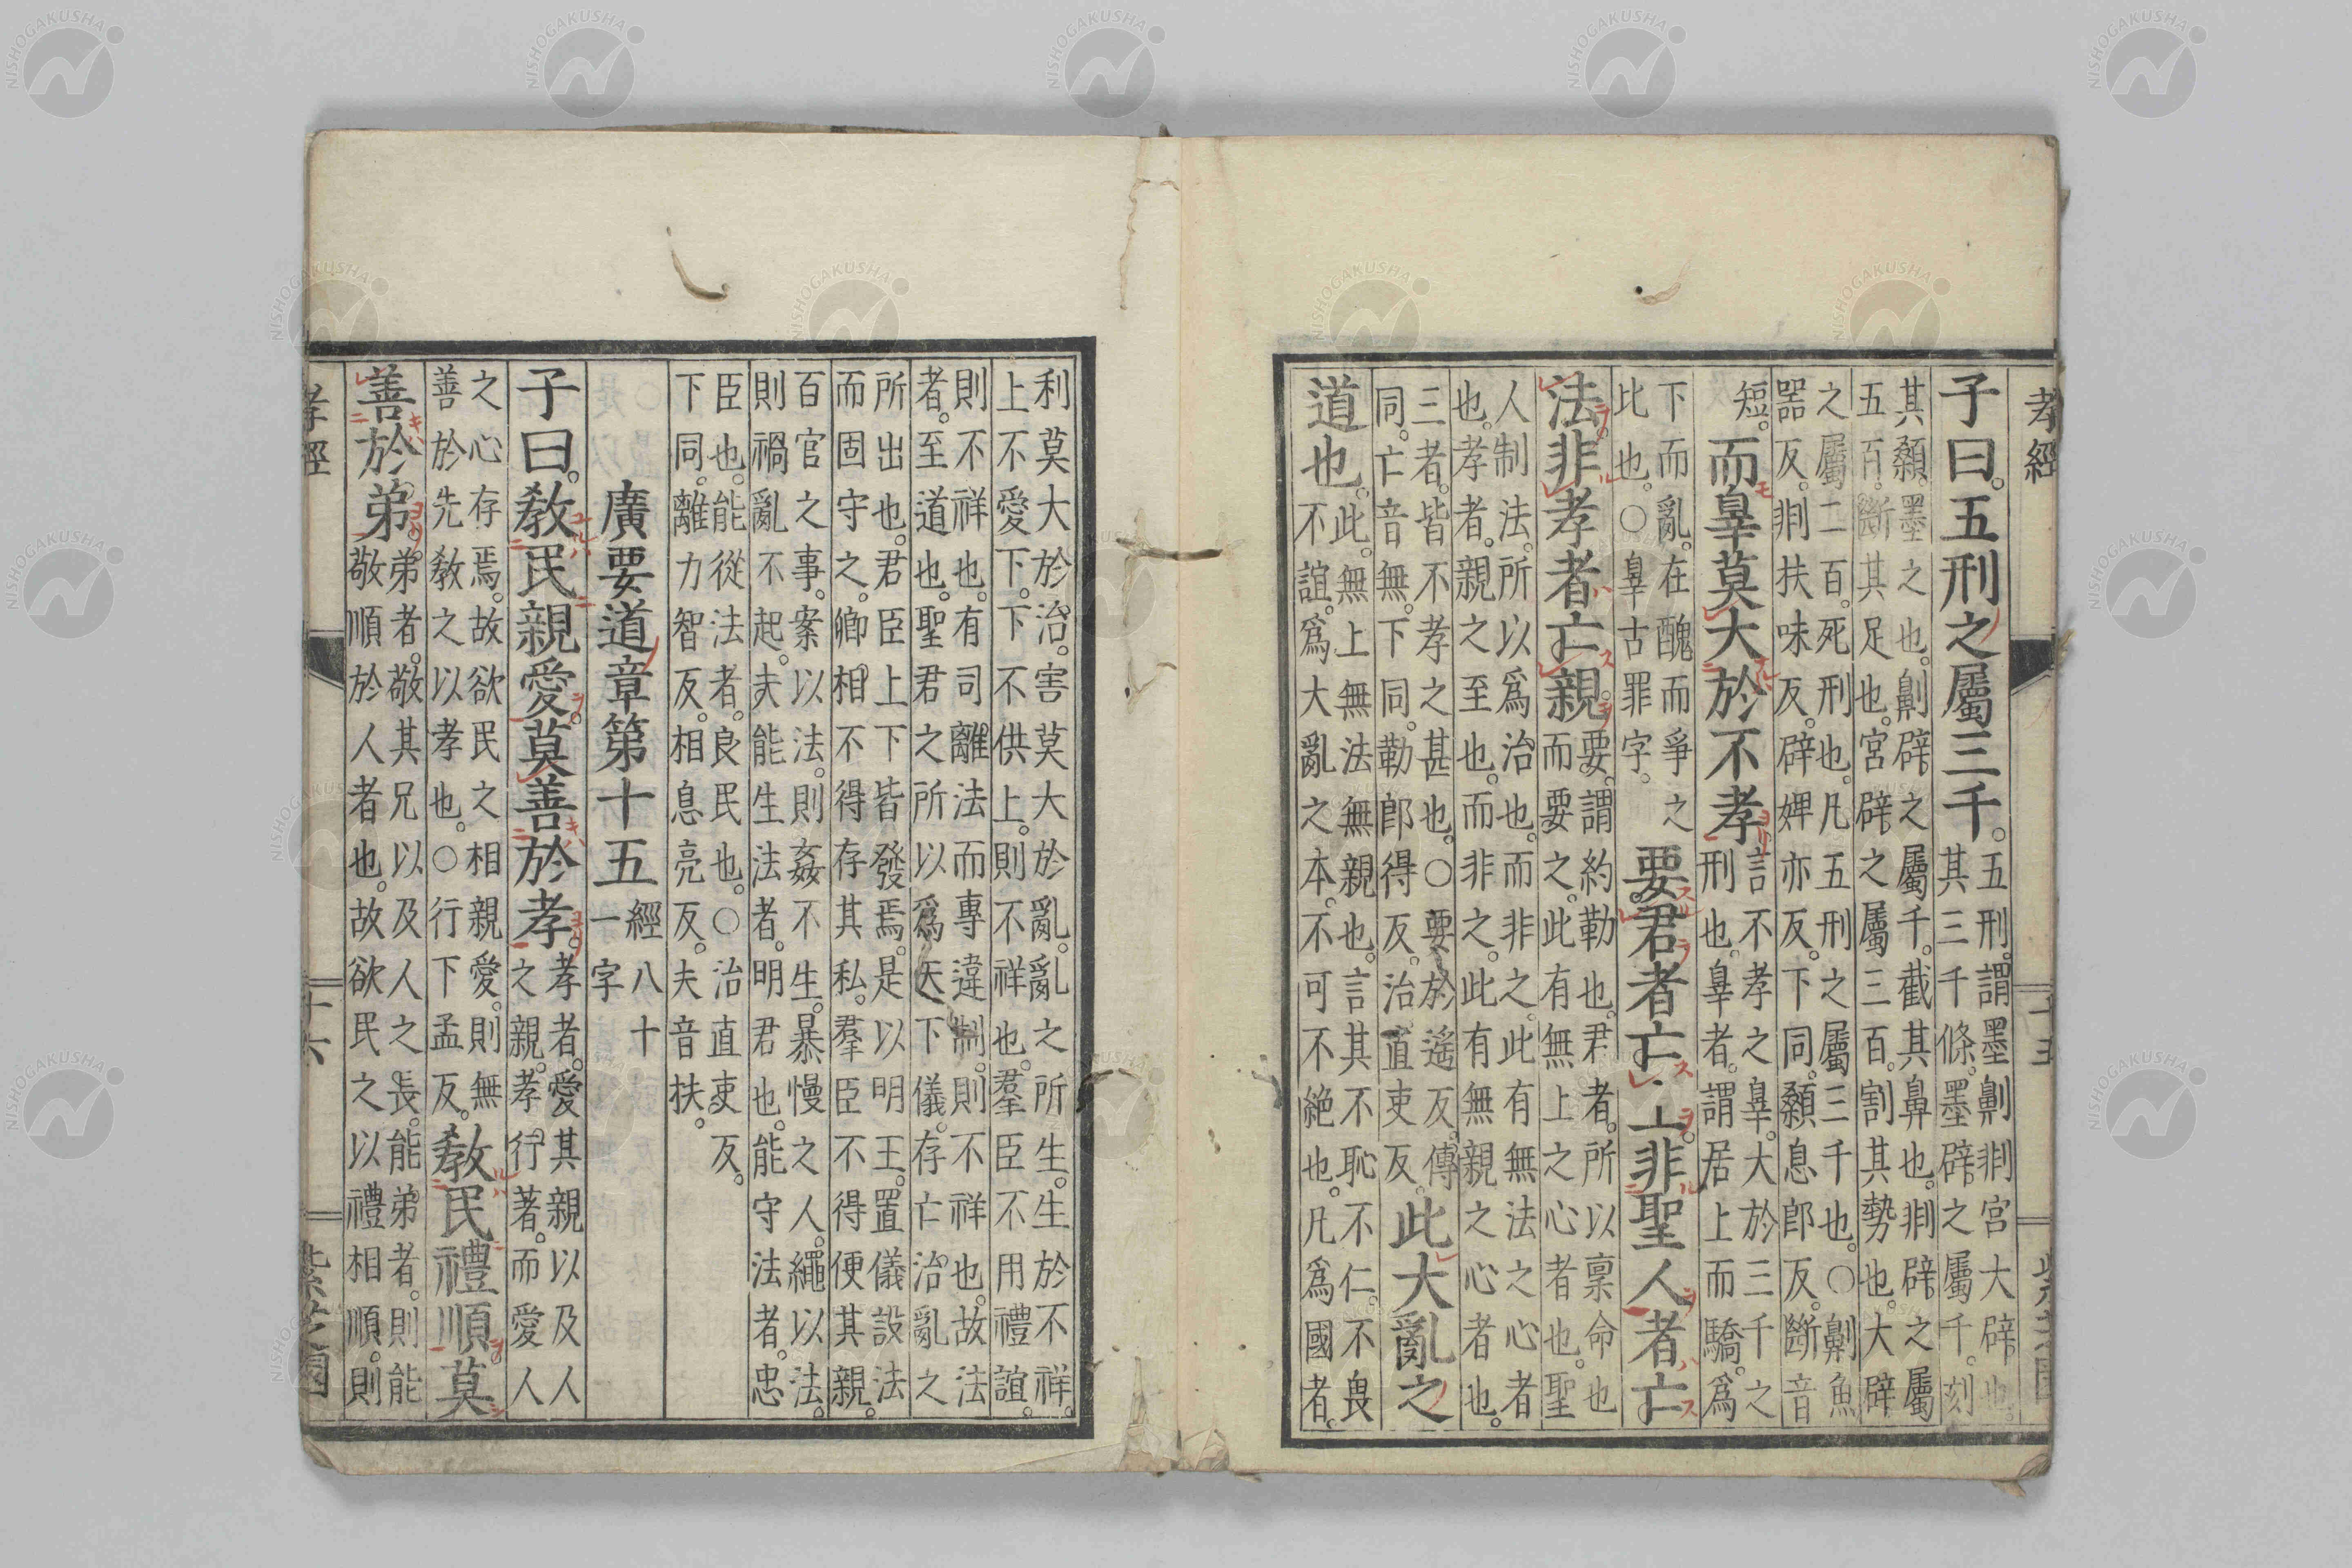 孝經 十五
子曰。五刑之屬三千。
五刑。謂墨劓剕宮大辟也。
其三千條。墨辟之屬千。刻
其顙。墨之也。劓辟之屬千。截其鼻也。剕辟之屬
五百。斷其足也。宮辟之屬三百。割其勢也。大辟
之屬二百。死刑也。凡五刑之屬三千也。○劓魚
器反。剕扶味反。辟婢亦反。下同。顙息郎反。斷音
短。
而辠莫大於不孝
言不孝之辠。大於三千之
刑也。辠者。謂居上而驕。爲
下而亂。在醜而爭之
此也。○辠古罪字。
要君者亡上。非聖人者亡
法。非孝者亡親。
要。謂約勒也。君者。所以稟命也
而要之。此有無上之心者也。聖
人制法。所以爲治也。而非之。此有無法之心者
也。孝者。親之至也。而非之。此有無親之心者也。
三者。皆不孝之甚也。○要於遙反。傳
同。亡音無。下同。勒郎得反。治直吏反。
此大亂之
道也。
此。無上無法無親也。言其不恥不仁。不畏
不誼。爲大亂之本。不可不絕也。凡爲國者。
利莫大於治。害莫大於亂。亂之所生。生於不祥。
上不愛下。下不供上。則不祥也。羣臣不用禮誼。
則不祥也。有司離法而專違制。則不祥也。故法
者。至道也。聖君之所以爲天下儀。存亡治亂之
所出也。君臣上下皆發焉。是以明王。置儀設法
而固守之。卿相不得存其私。羣臣不得便其親。
百官之事。案以法。則姦不生。暴慢之人。繩以法。
則禍亂不起。夫能生法者。明君也。能守法者。忠
臣也。能從法者。良民也。○治直吏反。
下同。離力智反。相息亮反。夫音扶。
廣要道章第十五
經八十
一字
子曰。教民親愛。莫善於孝。
孝者。愛其親以及人
之親。孝行著。而愛人
之心存焉。故欲民之相親愛。則無
善於先教之以孝也。○行下孟反。
教民禮順。莫
善於弟。
弟者。敬其兄以及人之長。能弟者。則能
敬順於人者也。故欲民之以禮相順。則
孝經 十六 紫芝園